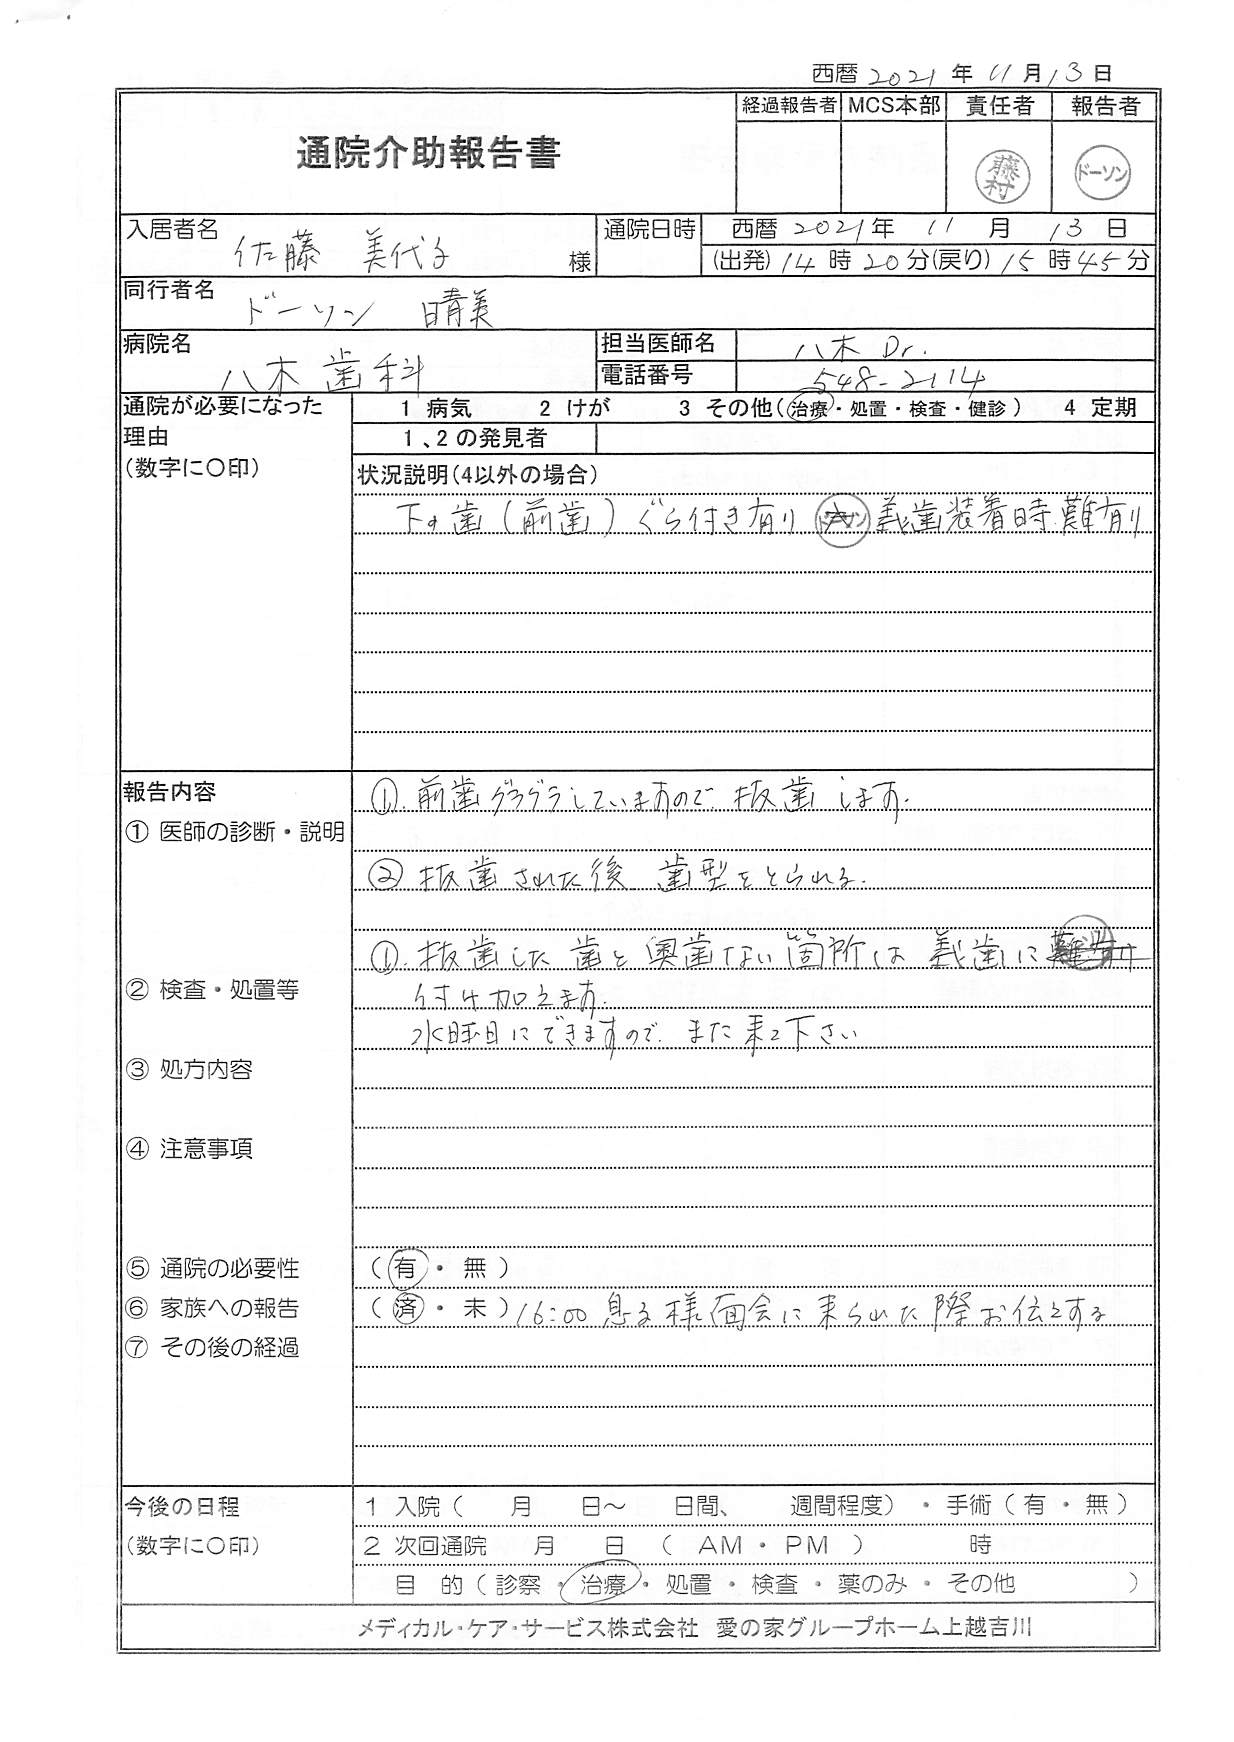 西暦 2021 年 11 月 13 日
経過報告者 MCS本部 責任者 報告者
通院介助報告書
藤村 ドーソン
入居者名 佐藤 美代子 様
通院日時 西暦 2021 年 11 月 13 日
(出発) 14 時 20 分 (戻り) 15 時 45 分
同行者名 ドーソン 晴美
病院名 八木歯科
担当医師名 八木 Dr.
電話番号 548-2114
通院が必要になった
理由
(数字に〇印)
1 病気 2 けが 3 その他(治療・処置・検査・健診) 4 定期
1、2の発見者
状況説明(4以外の場合)
下の歯(前歯)ぐら付き有り ドーソン 義歯装着時難有り
報告内容
① 前歯グラグラしていますので抜歯します.
① 医師の診断・説明
② 抜歯された後 歯型をとられる.
① 抜歯した歯と奥歯ない箇所は義歯に
② 検査・処置等
付け加えます.
水曜日にできますので.また来て下さい
③ 処方内容
④ 注意事項
⑤ 通院の必要性 (有・無)
⑥ 家族への報告 (済・未) 16:00 息子様面会に来られた際お伝えする
⑦ その後の経過
今後の日程
(数字に〇印)
1 入院( 月 日〜 日間、 週間程度)・手術(有・無)
2 次回通院 月 日 ( AM・PM ) 時
目 的(診察・治療・処置・検査・薬のみ・その他 )
メディカル・ケア・サービス株式会社 愛の家グループホーム上越吉川